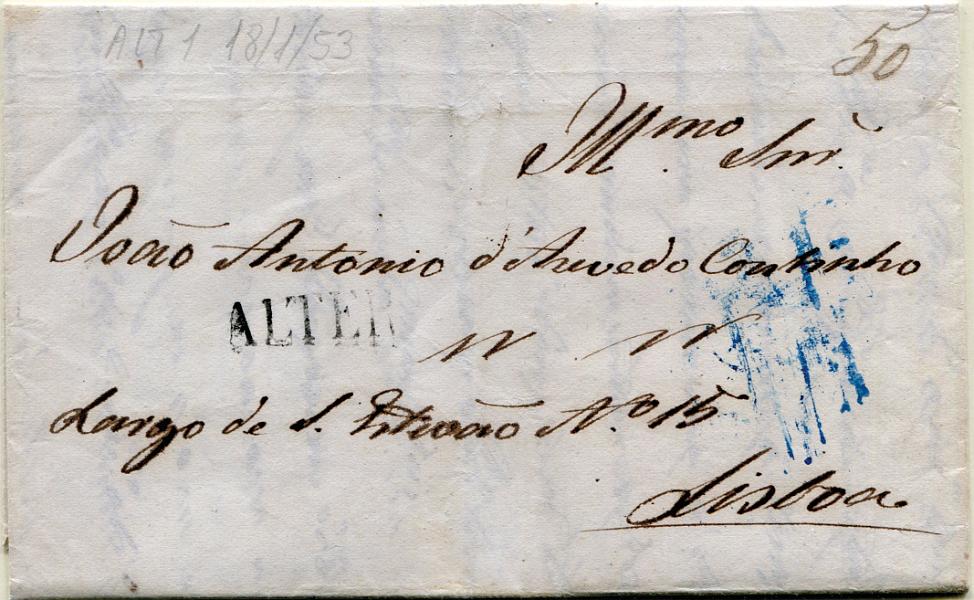 ALT 1 18/1/53
50
Illmo. Snr.
João Antonio d'Azevedo Continho
ALTER
Largo de S. Estevão No. 15
Lisboa